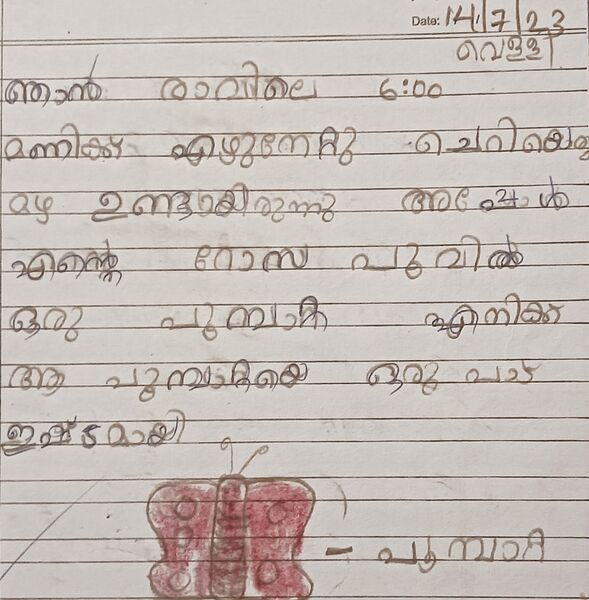 Date: 14/7/23
വെള്ളി
ഞാൻ രാവിലെ 6:00
മണിക്ക് എഴുന്നേറ്റു ചെറിയൊരു
മഴ ഉണ്ടായിരുന്നു അപ്പോൾ
എന്റെ റോസ പൂവിൽ
ഒരു പൂമ്പാറ്റ എനിക്ക്
ആ പൂമ്പാറ്റയെ ഒരു പാട്
ഇഷ്ടമായി
- പൂമ്പാറ്റ